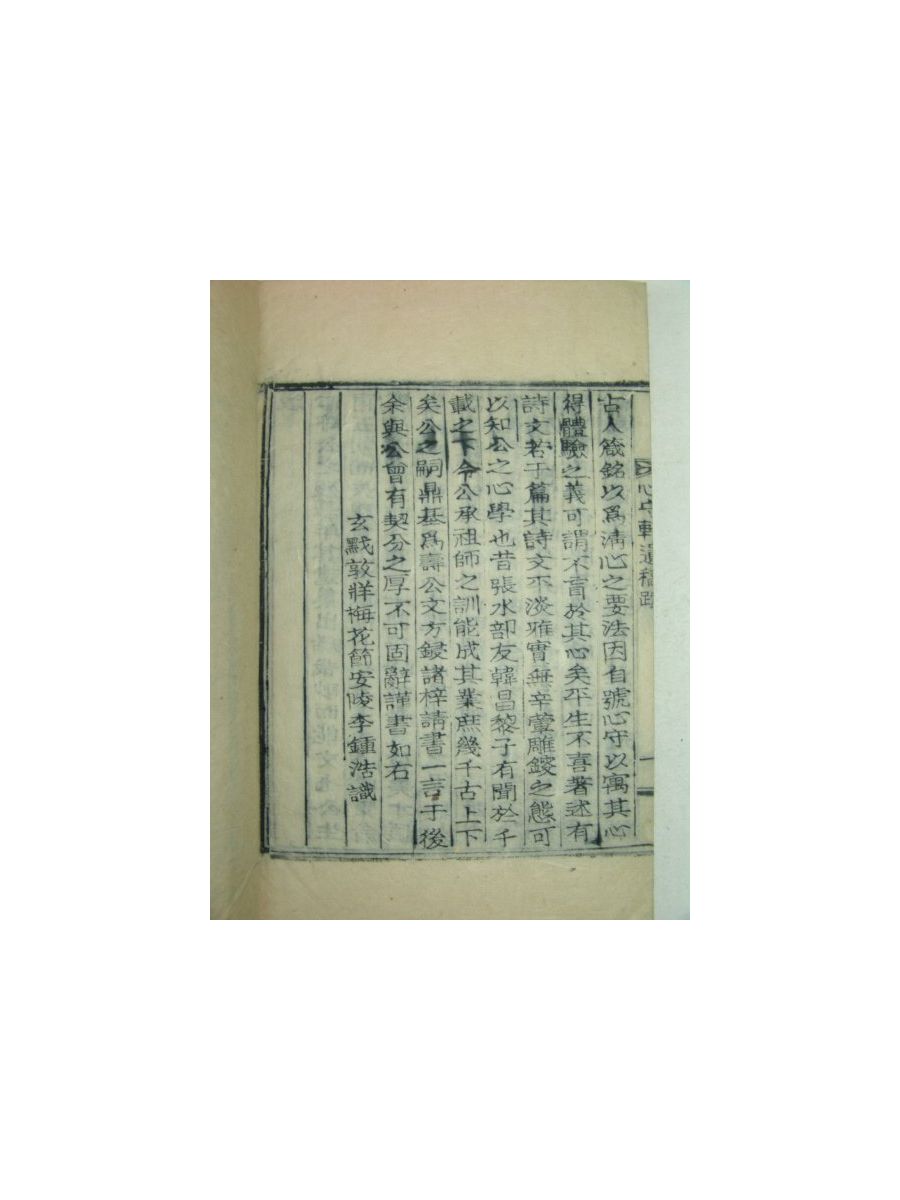 心守軒遺稿跋
古人箴銘以爲淸心之要法因自號心守以寓其心
得體驗之義可謂不盲於其心矣平生不喜著述有
詩文若于篇其詩文不淡雅實無辛葷雕鍐之態可
以知公之心學也昔張水部友韓昌黎子有聞於千
載之下令公承祖師之訓能成其業庶幾千古上下
矣公之嗣鼎基爲壽公文方鋟諸梓請書一言于後
余與公曾有契分之厚不可固辭謹書如右
玄黓敦牂梅花節安陵李鍾浩識